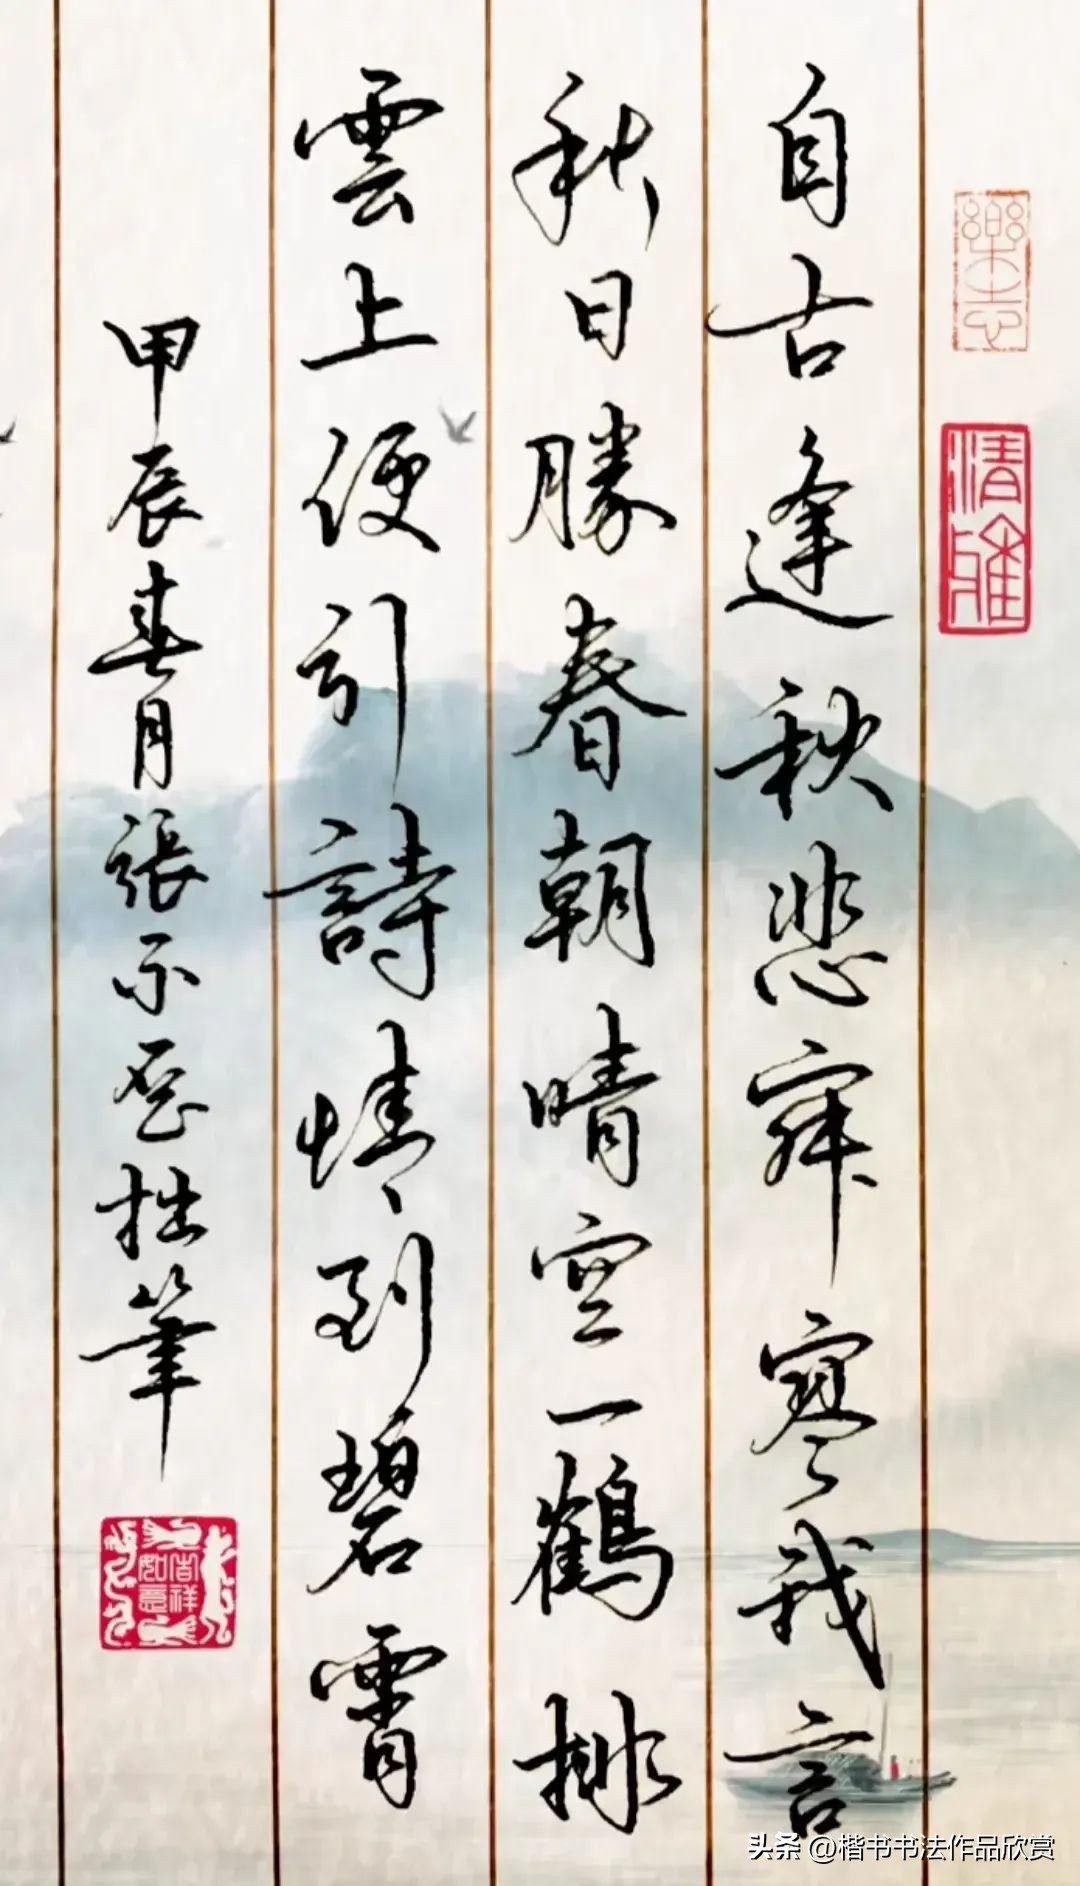 樂志
清雅
自古逢秋悲寂寥我言
秋日勝春朝晴空一鶴排
雲上便引詩情到碧霄
甲辰春月張拙筆
吉祥如意
头条 @楷书书法作品欣赏